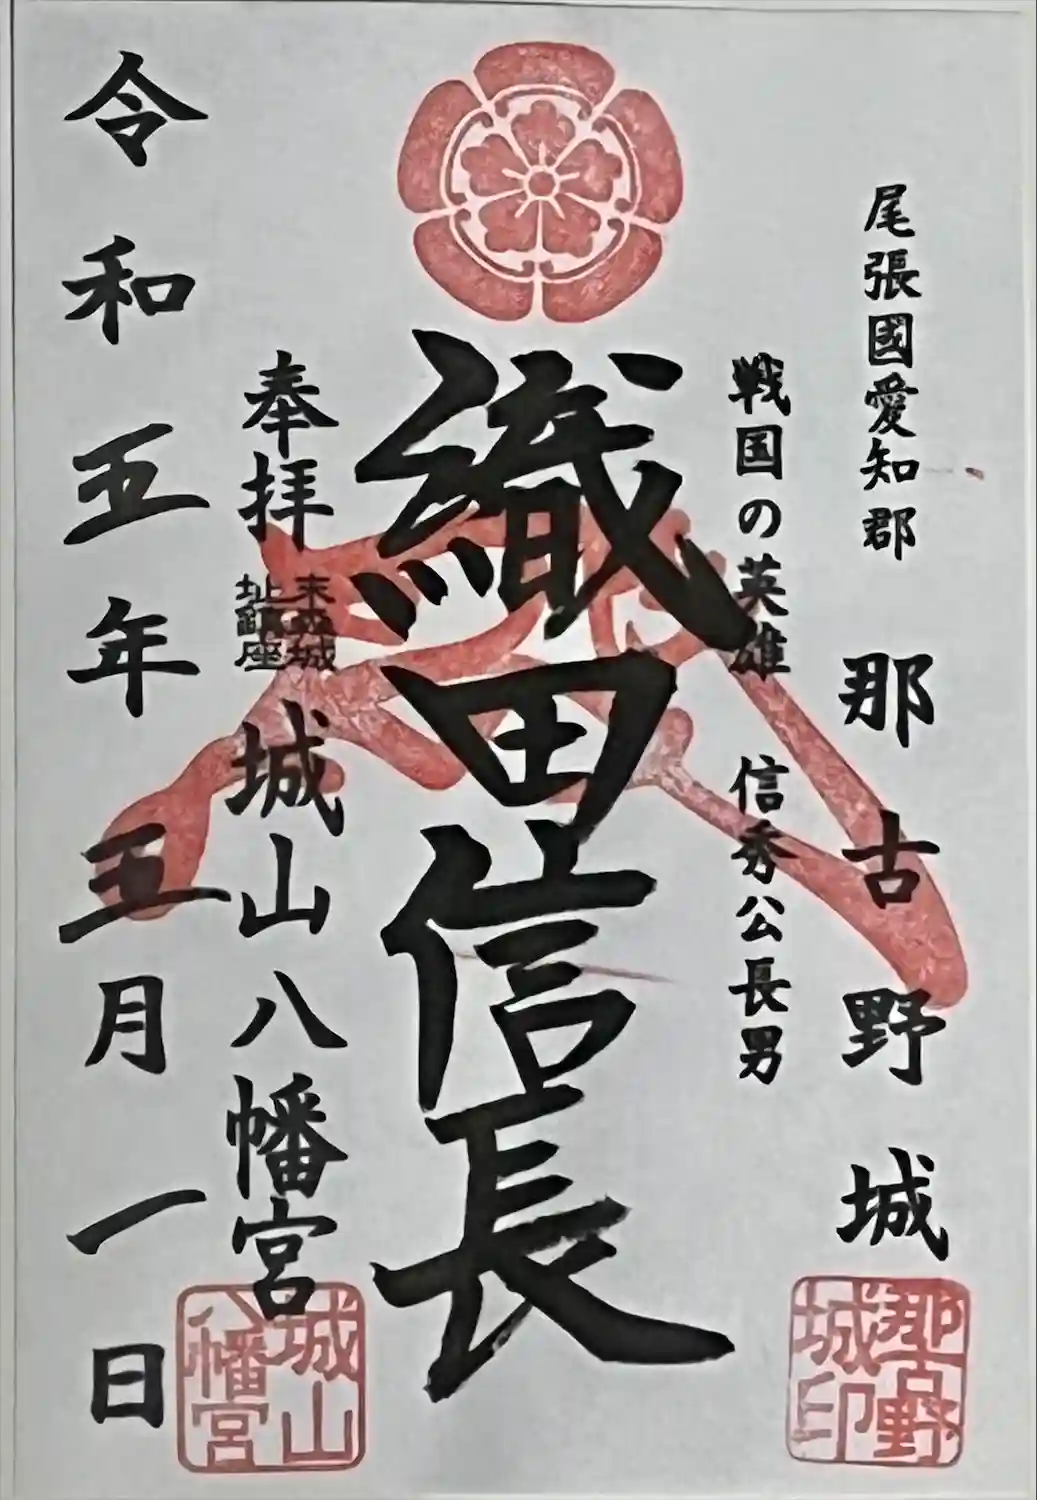 尾張國愛知郡 那古野城
戦国の英雄 信秀公長男
織田信長
奉拝 城山八幡宮
末森城
址鎮座
令和五年五月一日
那古野
城印
城山
八幡宮